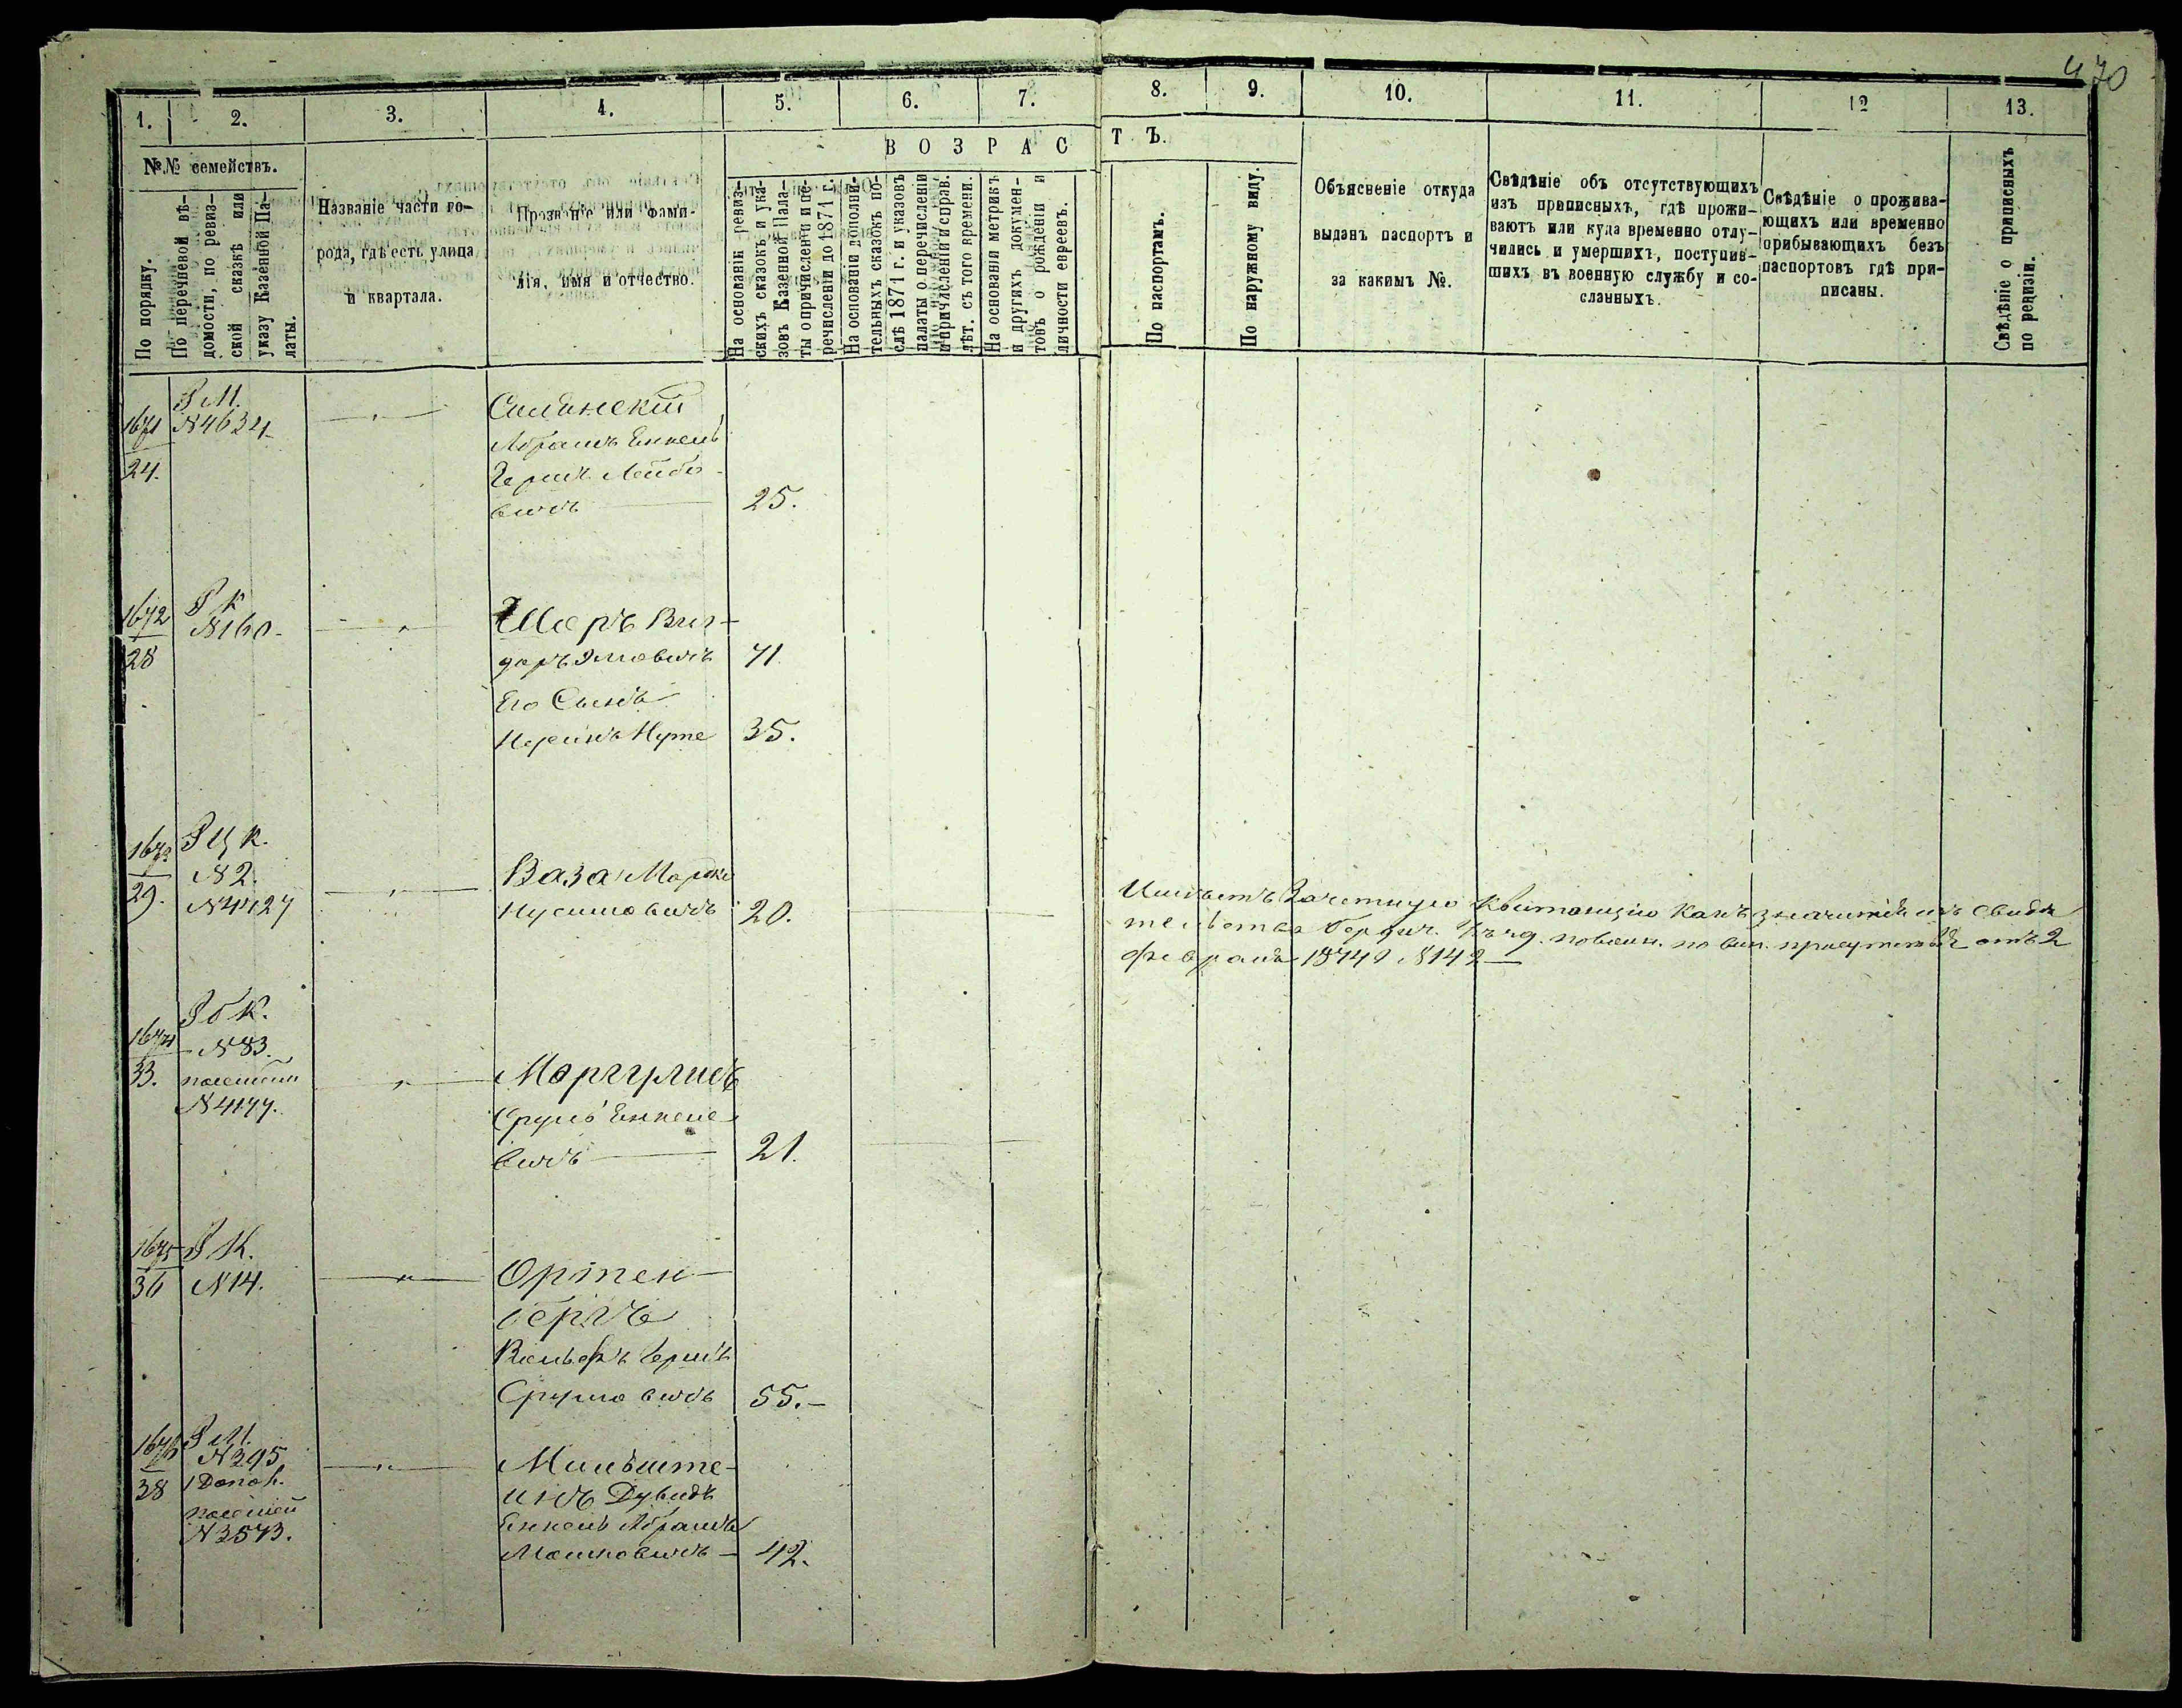 470
1. 2. 3. 4. 5. 6. 7. 8. 9. 10. 11. 12 13.
В О З Р А С Т Ъ.
№№ семействъ.
По порядку.
По перечневой вѣ-
домости, по ревиз-
ской сказкѣ или
указу Казенной Па-
латы.
Названіе части го-
рода, гдѣ есть улица
и квартала.
Прозваніе или фами-
лія, имя и отчество.
На основаніи ревиз-
скихъ сказокъ и ука-
зовъ Казенной Пала-
ты о причисленіи и пе-
речисленіи до 1871 г.
На основаніи дополни-
тельныхъ сказокъ по-
слѣ 1871 г. и указовъ
палаты о перечисленіи
и причисленіи и справ.
лѣт. съ того времени.
На основаніи метрикъ
и другихъ докумен-
товъ о рожденіи и
личности евреевъ.
По паспортамъ.
По наружному виду.
Объясненіе откуда
выданъ паспортъ и
за какимъ №.
Свѣдѣніе объ отсутствующихъ
изъ приписныхъ, гдѣ прожи-
ваютъ или куда временно отлу-
чились и умершихъ, поступив-
шихъ въ военную службу и со-
сланныхъ.
Свѣдѣніе о прожива-
ющихъ или временно
прибывающихъ безъ
паспортовъ гдѣ при-
писаны.
Свѣдѣніе о приписныхъ
по ревизіи.
1671
24.
Р М.
№4634
Абрамъ Енкель
Гершъ Лейбо-
вичъ 25.
1672
28
Р К
№160.
Шеръ
71.
Его Сынъ
35.
1673
29.
Р Ц К.
№2.
№4727
Ваза Мордко
Нусимовичъ 20.
Имѣетъ Зачетную Квитанцію какъ значится изъ Свидѣ
тельства Бердич. повин. присутствія отъ 2
февраля 1874 г №142
1674
33.
Р б К.
№83.
№4177.
Маргулисъ
Срулъ Енкеле
вичъ 21.
1675
36
Р К.
№14.
Ортен-
бергъ
Вольфъ Гершъ
Срулевичъ 55.-
1676
38
Р М.
№395
№3573.
Мильште-
инъ Дувидъ
Енкель Абрамъ
Мошковичъ - 42.